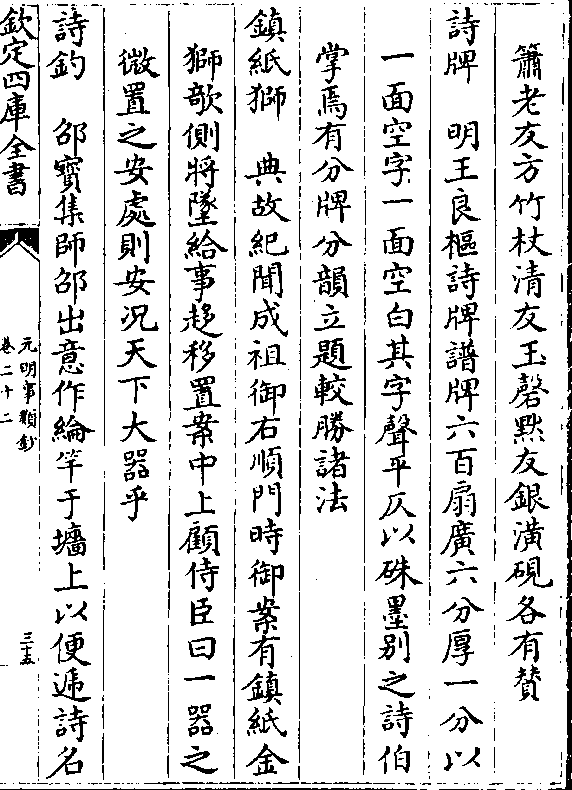 簫老友方竹杖清友玉磬黙友銀潢硯各有賛
詩牌　明王良樞詩牌譜牌六百扇廣六分厚一分以
一面空字一面空白其字聲平仄以硃墨别之詩伯
掌焉有分牌分韻立題較勝諸法
鎮紙獅　典故紀聞成祖御右順門時御案有鎮紙金
獅欹側將墜給事趍移置案中上顧侍臣曰一器之
微置之安處則安况天下大器乎
詩釣　邵寳集師邵出意作綸竿于墻上以便遞詩名
欽定四庫全書
元明事類鈔
卷二十二
三十五